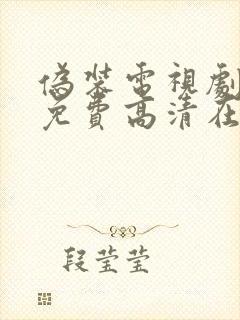 偽裝電視劇
免費高清在
段莹莹